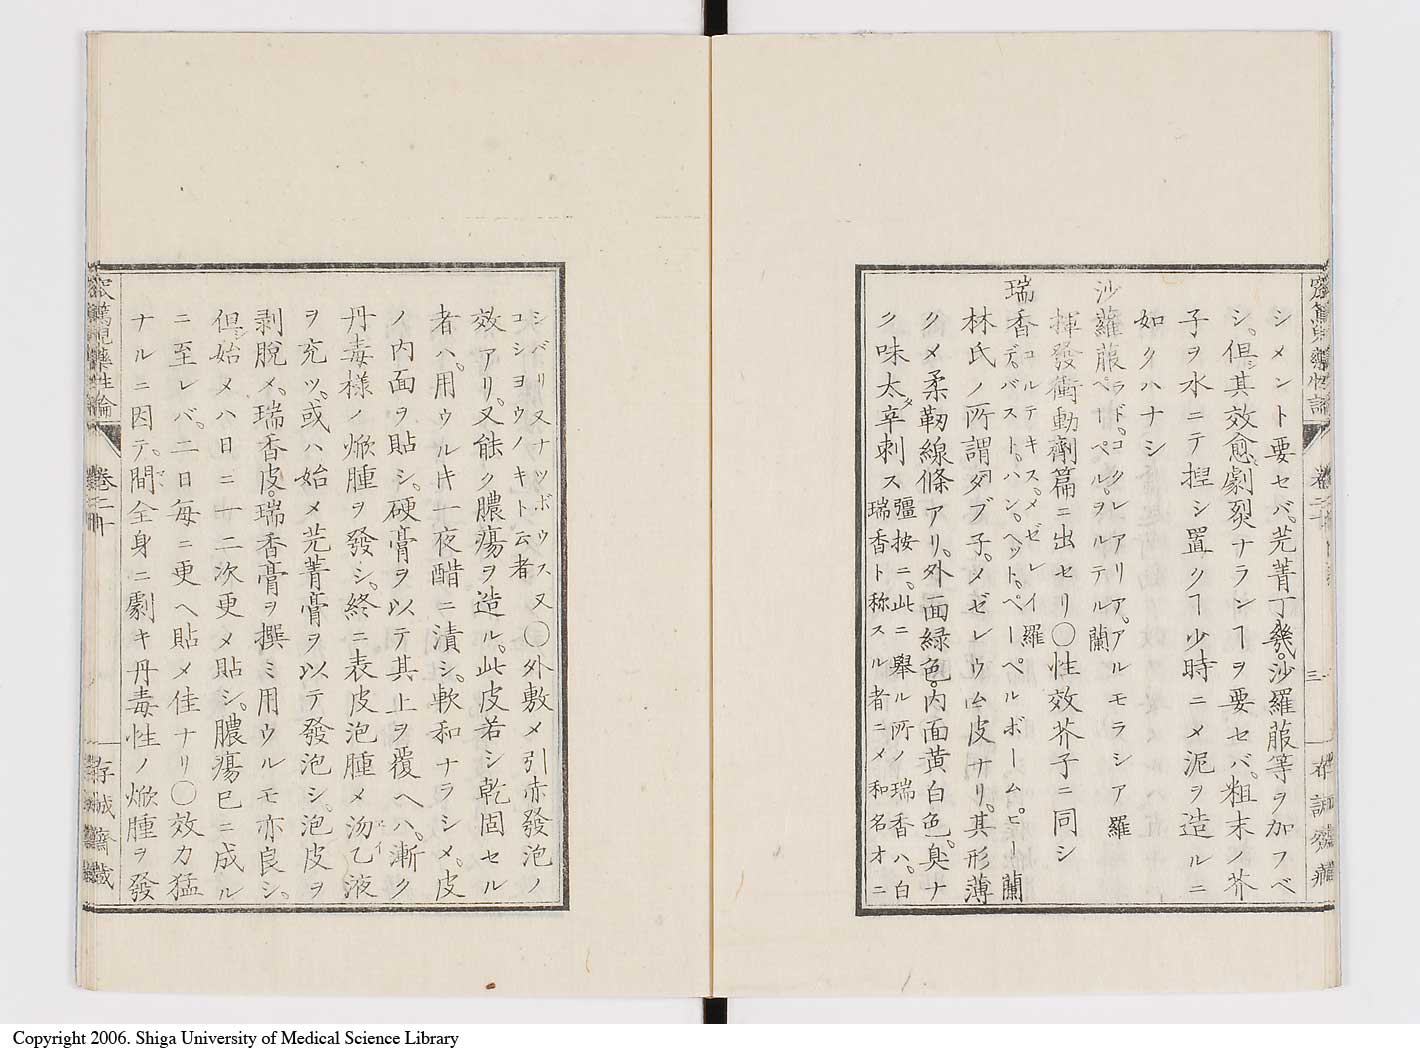 シメント要セバ芫菁丁幾。沙羅菔等ヲ加フベ
シ。但其效愈劇裂ナランヿヲ要セバ。粗末ノ芥
子ヲ水ニテ揑シ置クヿ少時ニメ泥ヲ造ルニ
如クハナシ
沙羅菔 ラド。コクレアリア。アルモラシア 羅
ペーペル。ヲルテル 蘭
揮發衝動劑篇ニ出セリ〇性效芥子ニ同シ
瑞香 コルテキス。メゼレイ 羅
デ。バスト。ハン。ヘット。ペーペルボーム。ピー 蘭
林氏ノ所謂ダブ子。メゼレウム皮ナリ。其形薄
クメ柔靭線條アリ。外面緑色。内面黄白色。臭ナ
ク味太辛刺ス 彊按ニ。此ニ舉ル所ノ瑞香ハ。白
瑞香ト称スル者ニメ和名オニ
シバリ又ナツボウス又
コシヨウノキト云者 〇外敷メ引赤發泡ノ
效アリ。又能ク膿瘍ヲ造ル。此皮若シ乾固セル
者ハ。用ウル𪜈一夜醋ニ漬シ。軟和ナラシメ。皮
ノ内面ヲ貼シ。硬膏ヲ以テ其上ヲ覆ヘハ。漸ク
丹毒様ノ焮腫ヲ發シ。終ニ表皮泡腫メ汤乙液
ヲ充ツ。或ハ始メ芫菁膏ヲ以テ發泡シ。泡皮ヲ
剥脫メ。瑞香皮。瑞香膏ヲ撰ミ用ウルモ亦良シ。
但始メハ日ニ一二次更メ貼シ。膿瘍已ニ成ル
ニ至レバ。二日毎ニ更ヘ貼メ佳ナリ〇效力猛
ナルニ因テ。間全身ニ劇キ丹毒性ノ焮腫ヲ發
窊篤児藥性論
卷二十
存誠齋藏
Copyright 2006. Shiga University of Medical Science Library